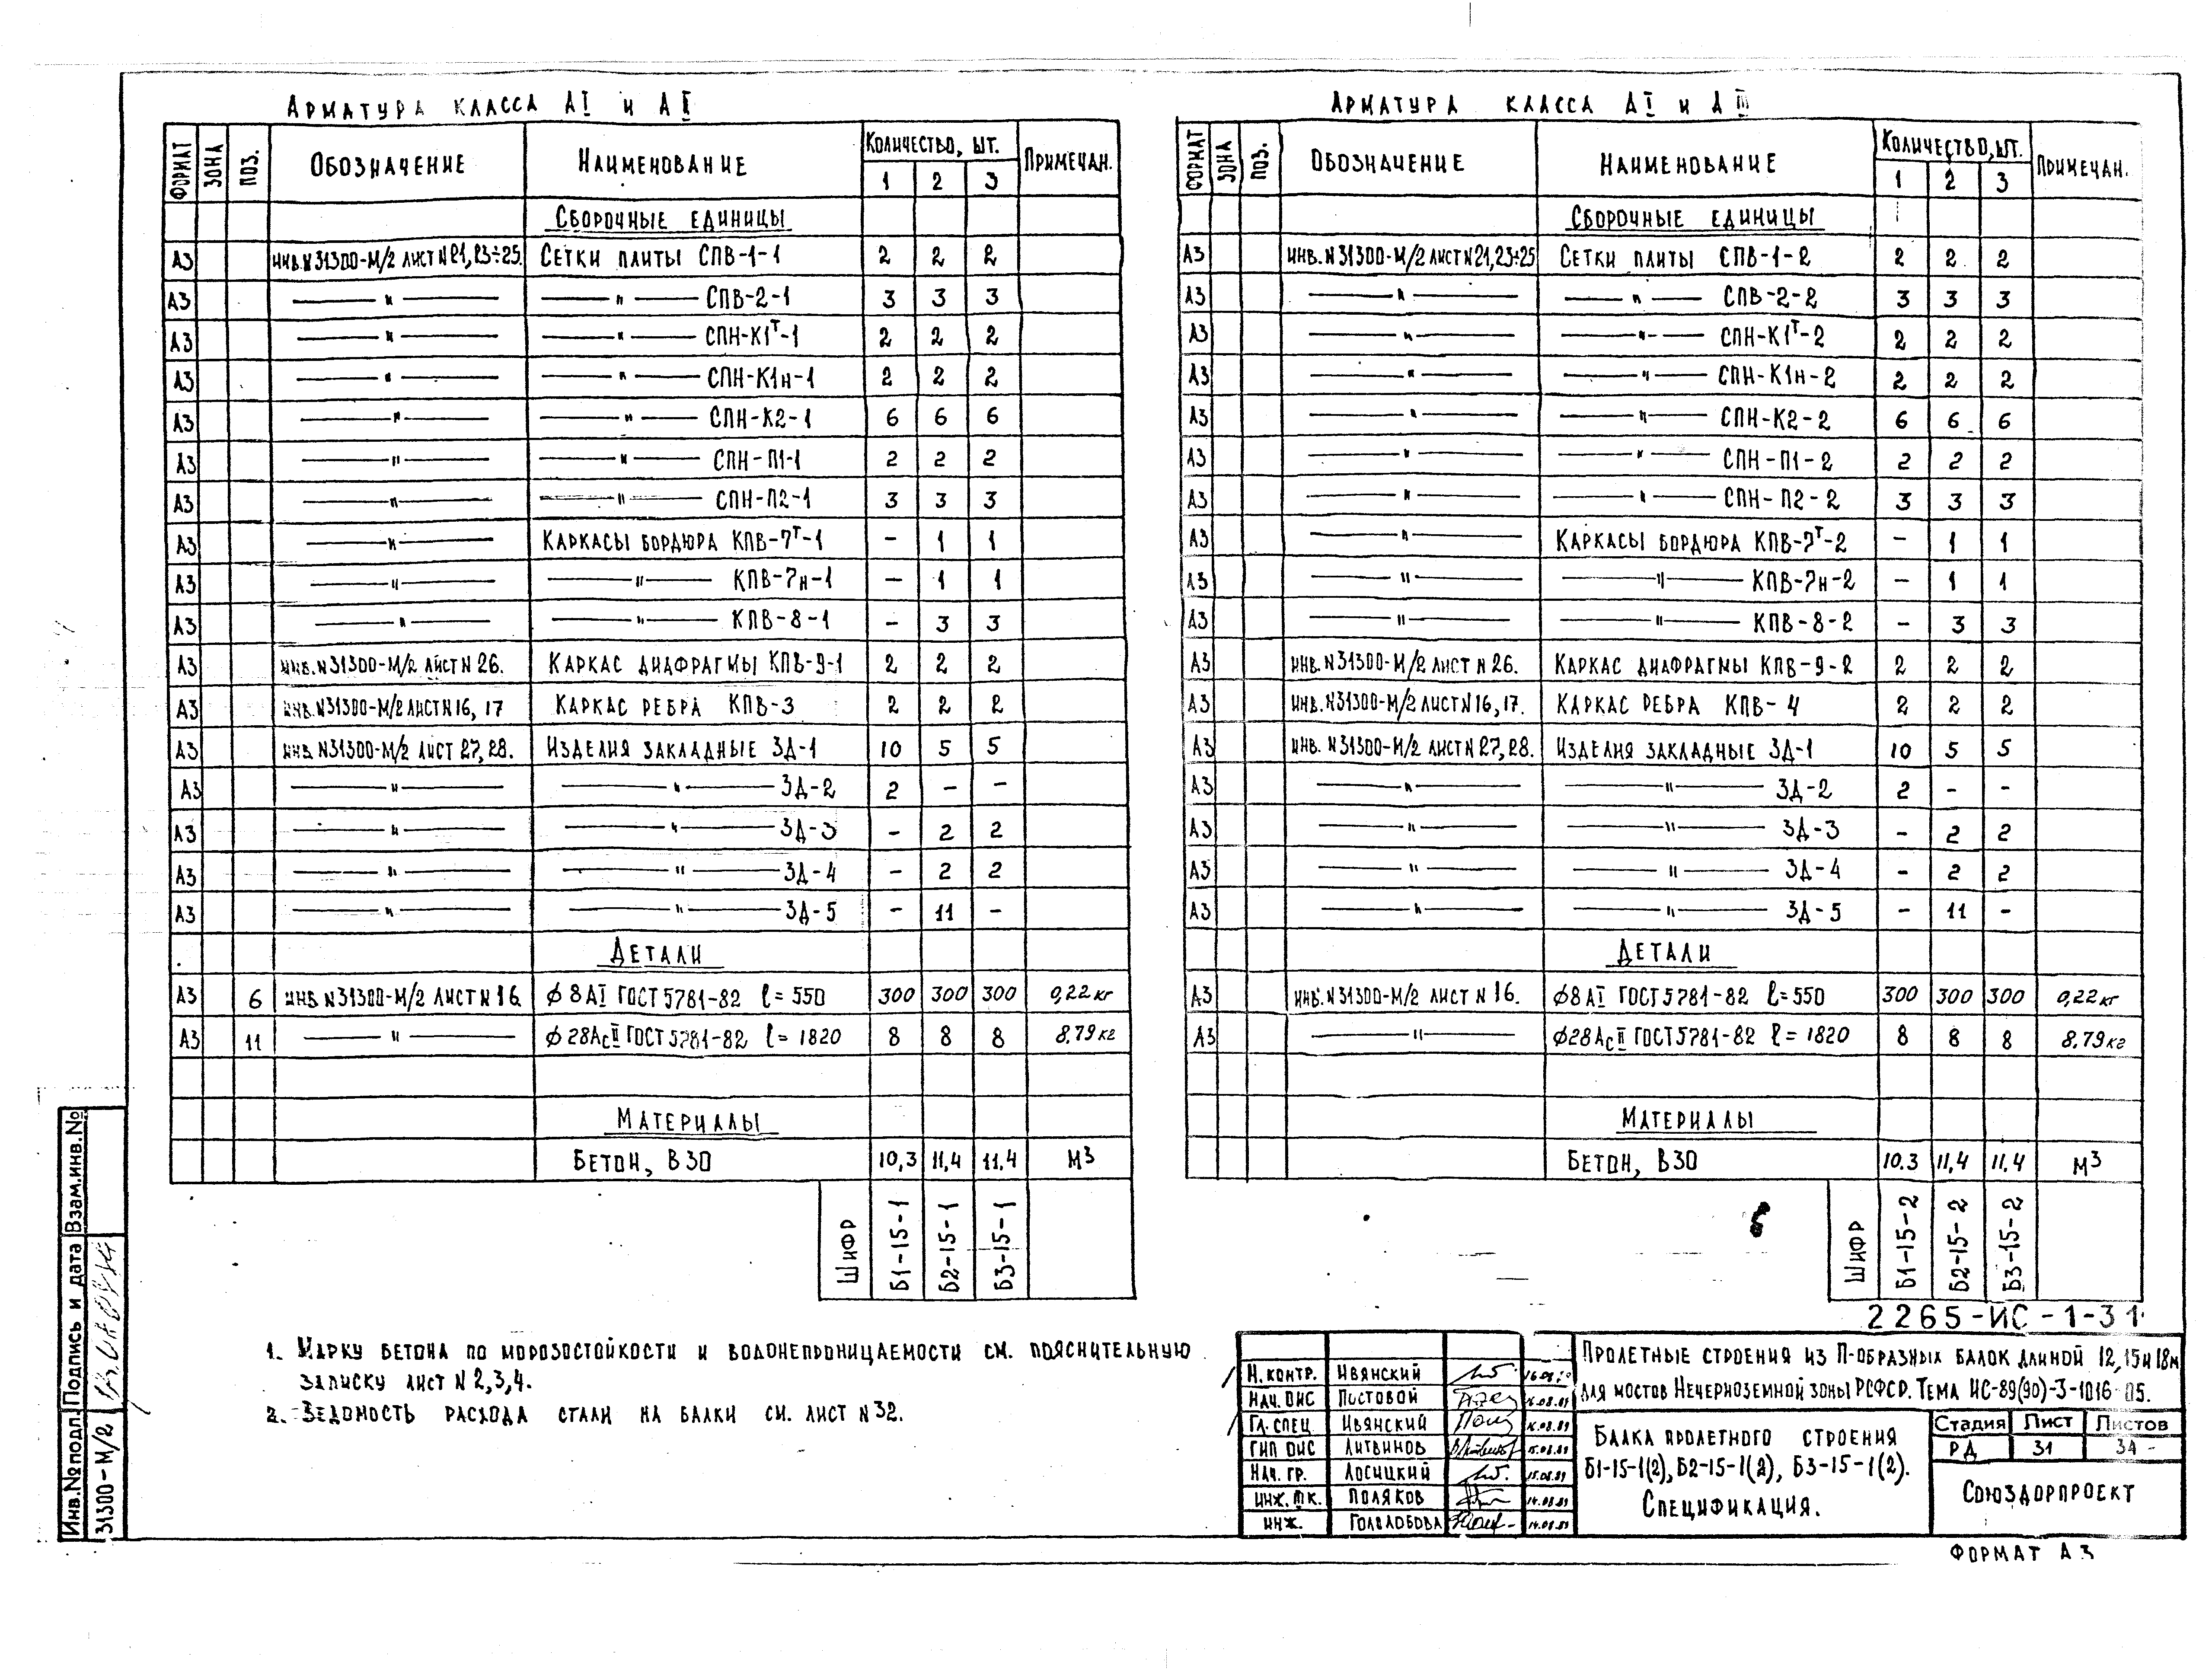 Арматура класса АI и АII
Формат Зона Поз. Обозначение Наименование Количество, шт. Примечан.
1 2 3
Сборочные единицы
А3 инв.N31300-М/2 лист N21,23÷25. Сетки плиты СПВ-1-1 2 2 2
А3 —"— —"— СПВ-2-1 3 3 3
А3 —"— —"— СПН-К1Т-1 2 2 2
А3 —"— —"— СПН-К1н-1 2 2 2
А3 —"— —"— СПН-К2-1 6 6 6
А3 —"— —"— СПН-П1-1 2 2 2
А3 —"— —"— СПН-П2-1 3 3 3
А3 —"— Каркасы бордюра КПВ-7Т-1 - 1 1
А3 —"— —"— КПВ-7н-1 - 1 1
А3 —"— —"— КПВ-8-1 - 3 3
А3 инв.N31300-М/2 лист N26. Каркас диафрагмы КПВ-9-1 2 2 2
А3 инв.N31300-М/2 лист N16, 17 Каркас ребра КПВ-3 2 2 2
А3 инв N31300-М/2 лист 27,28. Изделия закладные ЗД-1 10 5 5
А3 —"— —"— ЗД-2 2 - -
А3 —"— —"— ЗД-3 - 2 2
А3 —"— —"— ЗД-4 - 2 2
А3 —"— —"— ЗД-5 - 11 -
Детали
А3 6 инв N31300-М/2 лист N16. ϕ8АI ГОСТ5781-82 ℓ=550 300 300 300 0,22кг
А3 11 —"— ϕ28АсII ГОСТ5781-82 ℓ=1820 8 8 8 8,79кг
Материалы
Бетон, В30 10,3 11,4 11.4 м3
Шифр Б1-15-1 Б2-15-1 Б3-15-1
Арматура класса АI и АIII
Формат Зона Поз. Обозначение Наименование Количество, шт. Примечан.
1 2 3
Сборочные единицы
А3 инв.N31300-М/2 лист N21,23÷25 Сетки плиты СПВ-1-2 2 2 2
А3 —"— —"— СПВ-2-2 3 3 3
А3 —"— —"— СПН-К1Т-2 2 2 2
А3 —"— —"— СПН-К1н-2 2 2 2
А3 —"— —"— СПН-К2-2 6 6 6
А3 —"— —"— СПН-П1-2 2 2 2
А3 —"— —"— СПН-П2-2 3 3 3
А3 —"— Каркасы бордюра КПВ-7Т-2 - 1 1
А3 —"— —"— КПВ-7н-2 - 1 1
А3 —"— —"— КПВ-8-2 - 3 3
А3 инв.N31300-М/2 лист N26. Каркас диафрагмы КПВ-9-2 2 2 2
А3 инв.N31300-М/2 лист N16,17. Каркас ребра КПВ-4 2 2 2
А3 инв. N31300-М/2 лист N27,28. Изделия закладные ЗД-1 10 5 5
А3 —"— —"— ЗД-2 2 - -
А3 —"— —"— ЗД-3 - 2 2
А3 —"— —"— ЗД-4 - 2 2
А3 —"— —"— ЗД-5 - 11 -
Детали
А3 инв.N31300-М/2 лист N16. ϕ8АI ГОСТ5781-82 ℓ=550 300 300 300 0,22кг
А3 —"— ϕ28АсII ГОСТ5781-82 ℓ=1820 8 8 8 8,79кг
Материалы
Бетон, В30 10.3 11,4 11.4 м3
Шифр Б1-15-2 Б2-15-2 Б3-15-2
2265-ИС-1-31
1. Марку бетона по морозостойкости и водонепроницаемости см. пояснительную
записку лист N2,3,4.
2. Ведомость расхода стали на балки см. лист N32.
Взам.инв.№
Подпись и дата
Инв.№подл.
31300-М/2
Н.контр. Ивянский
Нач. ОИС Постовой 16.08.89
Гл.спец Ивянский 16.08.89
ГИП ОИС Литвинов 15.08.89
Нач. гр. Лосицкий 15.08.89
Инж. IIк. Поляков 14.08.89
Инж. Гололобова 14.08.89
Пролетные строения из П-образных балок длиной 12,15и18м
для мостов Нечерноземной зоны РСФСР. Тема ИС-89(90)-3-1016 П5.
Балка пролетного строения
Б1-15-1(2), Б2-15-1(2), Б3-15-1(2).
Спецификация.
Стадия Лист Листов
РД 31 34
Союздорпроект
Формат А3